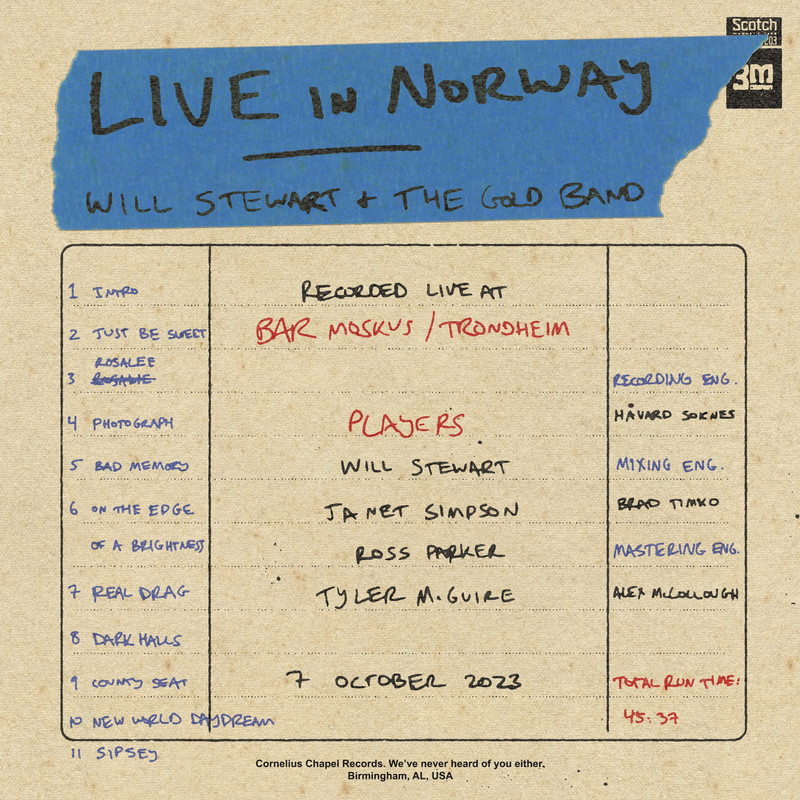 Scotch
3M
LIVE IN NORWAY
WILL STEWART + THE GOLD BAND
1 INTRO
2 JUST BE SWEET
ROSALEE
3 ROSALIE
4 PHOTOGRAPH
5 BAD MEMORY
6 ON THE EDGE
OF A BRIGHTNESS
7 REAL DRAG
8 DARK HALLS
9 COUNTY SEAT
10 NEW WORLD DAYDREAM
11 SIPSEY
RECORDED LIVE AT
BAR MOSKUS / TRONDHEIM
PLAYERS
WILL STEWART
JANET SIMPSON
ROSS PARKER
TYLER McGUIRE
7 OCTOBER 2023
RECORDING ENG.
HÅVARD SOKNES
MIXING ENG.
BRAD TIMKO
MASTERING ENG.
ALEX McCOLLOUGH
TOTAL RUN TIME:
45:37
Cornelius Chapel Records. We've never heard of you either.
Birmingham, AL, USA